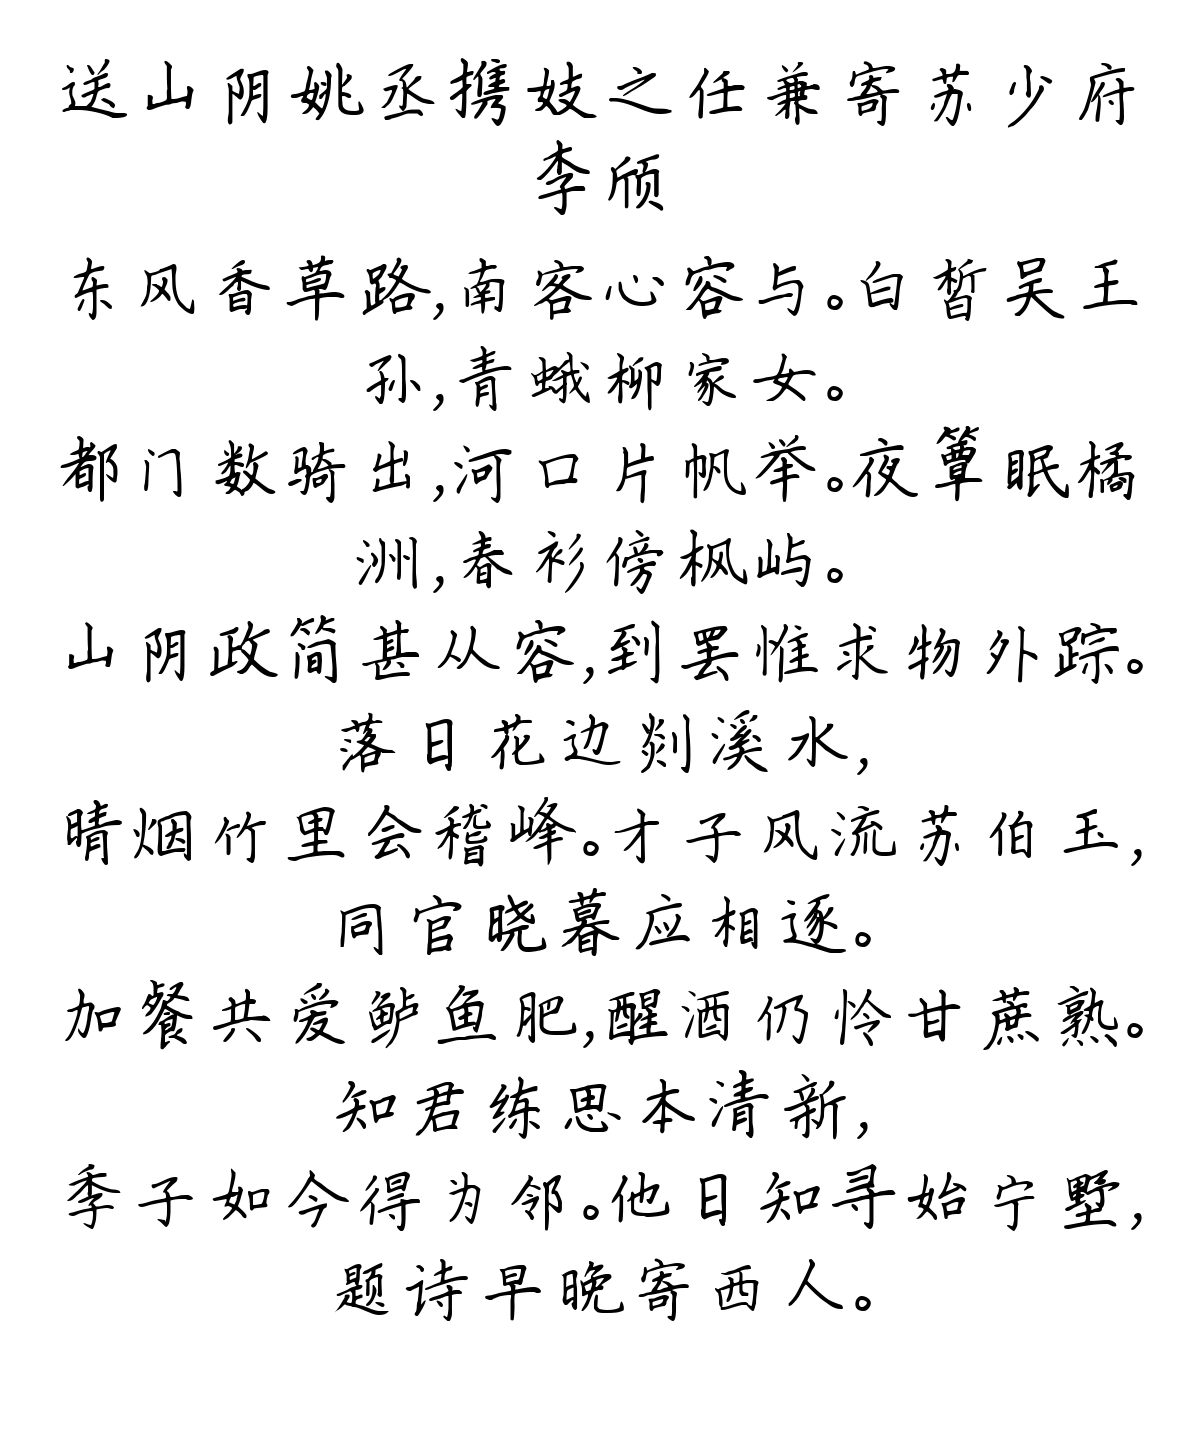 送山阴姚丞携妓之任兼寄苏少府
李颀
东风香草路,南客心容与。白皙吴王
孙,青蛾柳家女。
都门数骑出,河口片帆举。夜簟眠橘
洲,春衫傍枫屿。
山阴政简甚从容,到罢惟求物外踪。
落日花边剡溪水,
晴烟竹里会稽峰。才子风流苏伯玉,
同官晓暮应相逐。
加餐共爱鲈鱼肥,醒酒仍怜甘蔗熟。
知君练思本清新,
季子如今得为邻。他日知寻始宁墅,
题诗早晚寄西人。